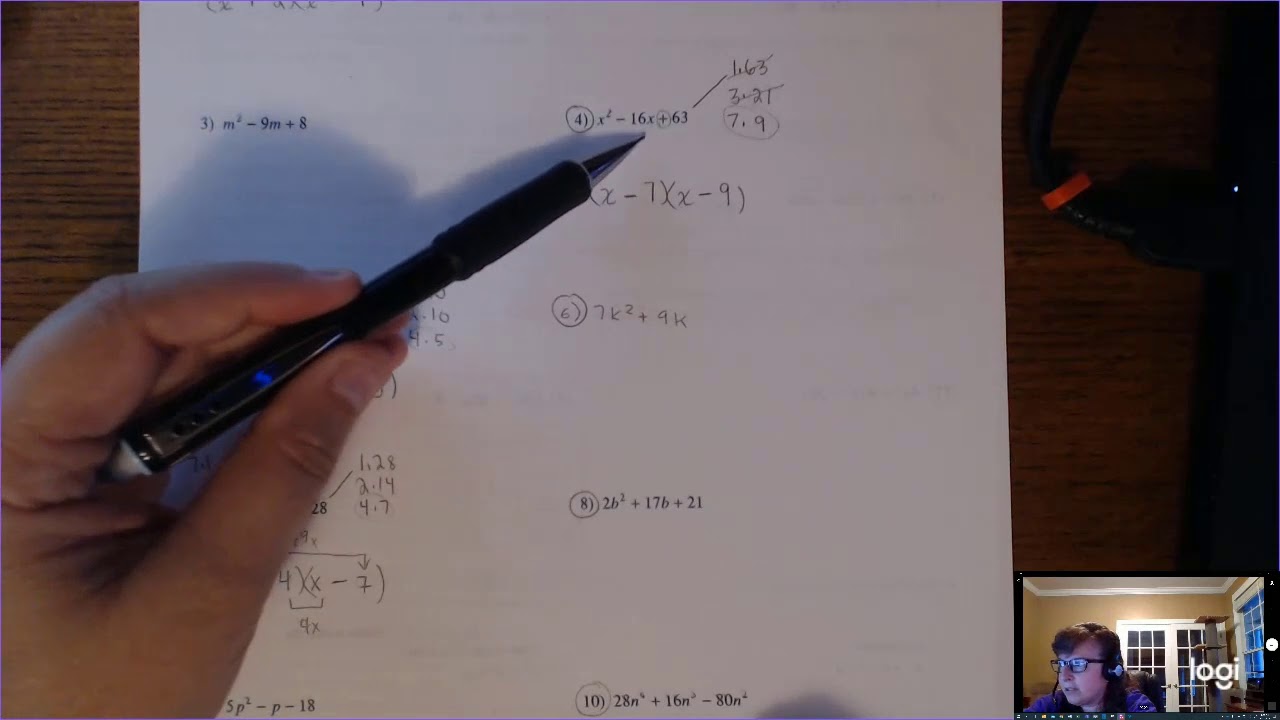 3) m² − 9m + 8
4) x² − 16x + 63
1·63
3·21
7·9
(x − 7)(x − 9)
·10
4·5
6) 7k² + 9k
1·28
2·14
28
4·7
4)(x − 7)
4x
8) 2b² + 17b + 21
5p² − p − 18
10) 28n⁴ + 16n³ − 80n²
logi